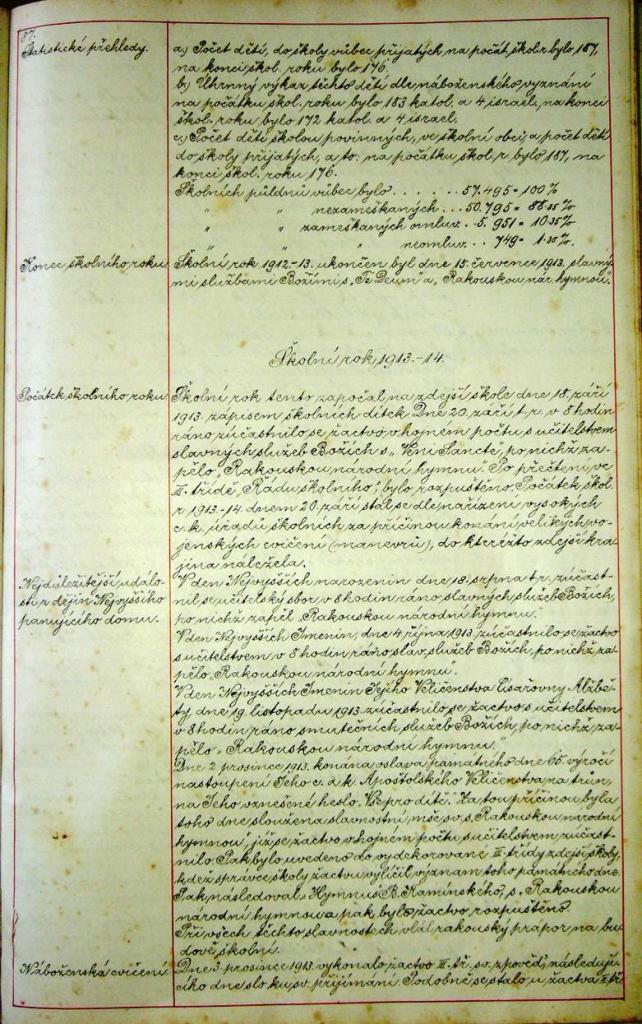 87.
Statistické přehledy.
a.) Počet dětí, do školy vůbec přijatých, na počát. škol. r. bylo 187,
na konci škol. roku bylo 176.
b.) Úhrnný výkaz těchto dětí dle náboženského vyznání
na počátku škol. roku bylo 183 katol. a 4 israel., na konci
škol. roku bylo 172 katol. a 4 israel.
c.) Počet dětí školou povinných, ve školní obci, a počet dětí
do školy přijatých, a to na počátku škol. r. bylo 187, na
konci škol. roku 176.
Školních půldnů vůbec bylo . . . . . . 57.495 = 100 %
„ „ nezameškaných . . . 50.795 = 88·35 %
„ „ zameškaných omluv. . 5.951 = 10·35 %
„ „ neomluv. . . 749 = 1·30 %.
Konec školního roku
Školní rok 1912.-13. ukončen byl dne 15. července 1913. slavný-
mi službami Božími s „Te Deum“ a „Rakouskou nár. hymnou“.
Školní rok 1913.-14.
Počátek školního roku
Školní rok tento započal na zdejší škole dne 18. září
1913. zápisem školních dítek. Dne 20. září t. r. v 8 hodin
ráno zúčastnilo se žactvo v hojném počtu s učitelstvem
slavných služeb Božích s „Veni Sancte“, po nichž za-
pělo „Rakouskou národní hymnu“. Po přečtení ve
II. třídě „Řádu školního“, bylo rozpuštěno. Počátek škol.
r. 1913.-14. dnem 20. září stal se dle nařízení vysokých
c. k. úřadů školních za příčinou konání velikých vo-
jenských cvičení (manevrů), do kteréžto zdejší kra-
jina náležela.
Nejdůležitější událo-
sti z dějin Nejvyššího
panujícího domu.
V den Nejvyšších narozenin dne 18. srpna t. r. zúčast-
nil se učitelský sbor v 8 hodin ráno slavných služeb Božích,
po nichž zapěl „Rakouskou národní hymnu.“
V den Nejvyšších Jmenin, dne 4 října 1913. zúčastnilo se žactvo
s učitelstvem v 8 hodin ráno slav. služeb Božích, po nichž za-
pělo „Rakouskou národní hymnu“.
V den Nejvyšších Jmenin Jejího Veličenstva Císařovny Alžbě-
ty, dne 19. listopadu 1913. zúčastnilo se žactvo s učitelstvem
v 8 hodin ráno smutečních služeb Božích, po nichž za-
pělo „Rakouskou národní hymnu.
Dne 2 prosince 1913. konána oslava památného dne 65. výročí
nastoupení Jeho c. a k. Apoštolského Veličenstva na trůn,
na Jeho vznešené heslo „Vše pro dítě“. Za tou příčinou byla
toho dne sloužena slavnostní mše sv. s „Rakouskou národní
hymnou“, jíž se žactvo v hojném počtu s učitelstvem zúčast-
nilo. Pak bylo uvedeno do vydekorované II. třídy zdejší školy,
kdež správce školy žactvu vylíčil význam toho památného dne.
Pak následoval „Hymnus“ B. Kaminského, s „Rakouskou
národní hymnou a pak bylo žactvo rozpuštěno.
Při všech těchto slavnostech vlál rakouský prapor na bu-
dově školní.
Náboženská cvičení.
Dne 3 prosince 1913 vykonalo žactvo II. tř. sv. zpověď, následují-
cího dne šlo ku sv. přijímání. Podobně se stalo u žactva II. tř.